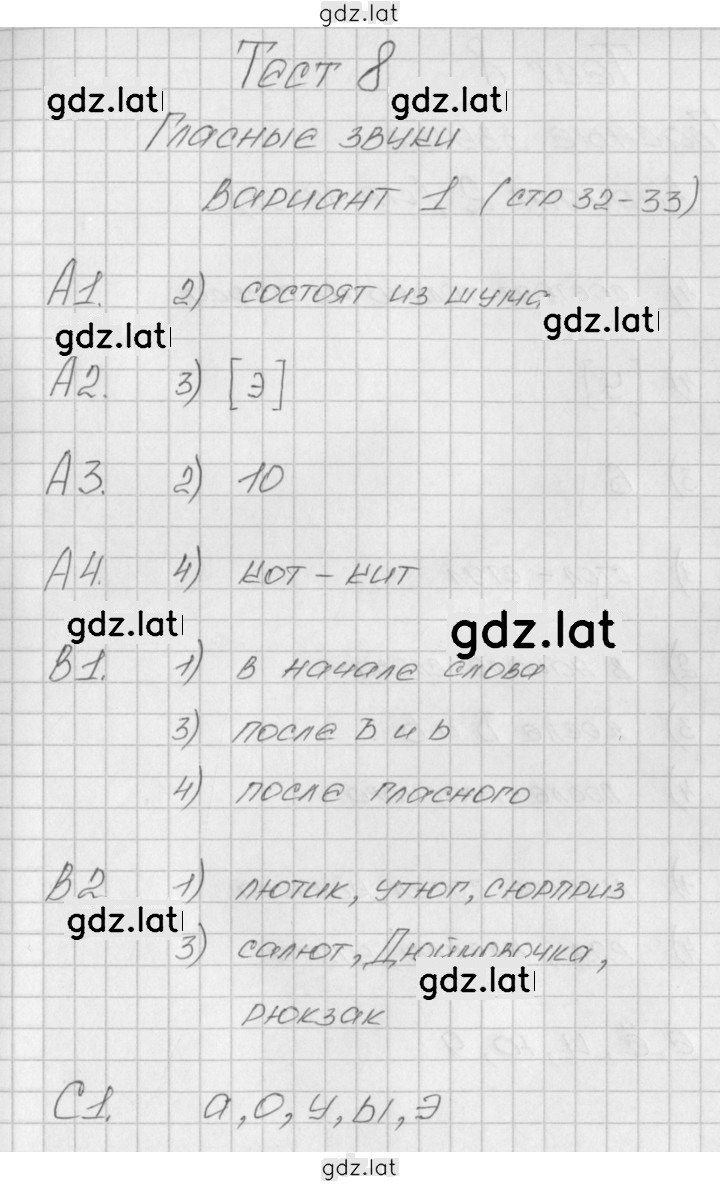 gdz.lat
Тест 8
gdz.lat gdz.lat
Гласные звуки
Вариант 1 (стр 32-33)
А1. 2) состоят из шума
gdz.lat
gdz.lat
А2. 3) [э]
А3. 2) 10
А4. 4) кот - кит
gdz.lat gdz.lat
В1. 1) в начале слова
3) после Ъ и Ь
4) после гласного
В2 1) лютик, утюг, сюрприз
gdz.lat
3) салют, Дюймовочка,
gdz.lat
рюкзак
С1. а, о, у, ы, э
gdz.lat